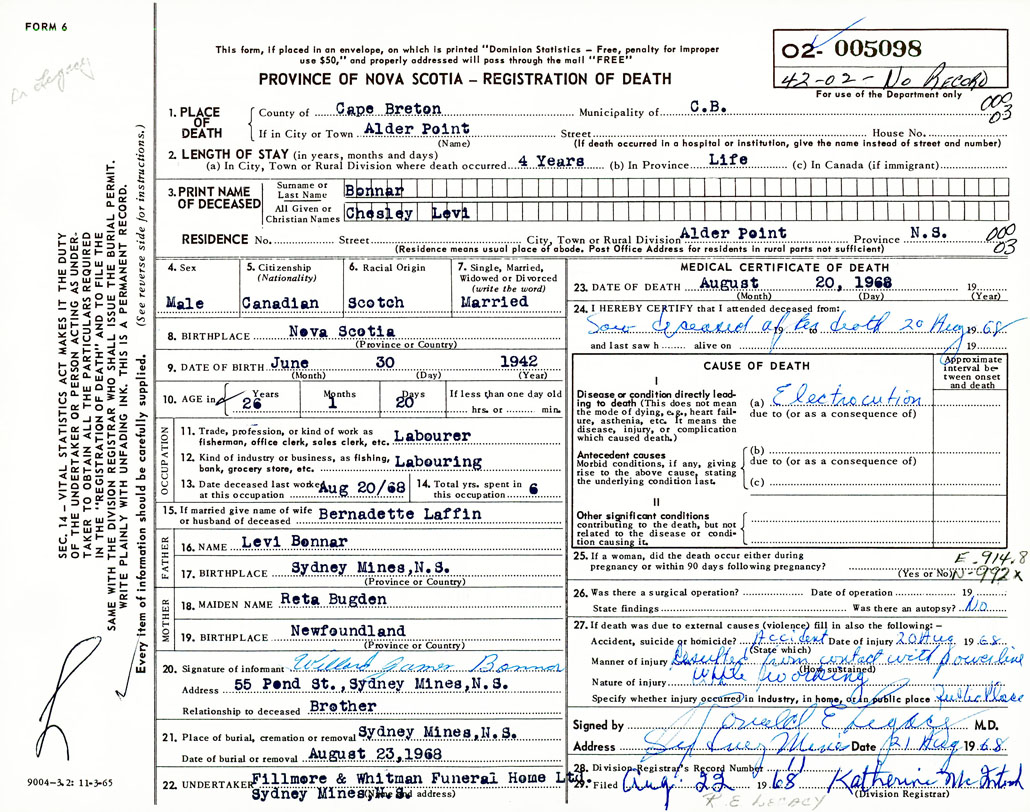 FORM 6
R.E. Legacy
This form, if placed in an envelope, on which is printed "Dominion Statistics – Free, penalty for improper
use $50," and properly addressed will pass through the mail "FREE"
PROVINCE OF NOVA SCOTIA – REGISTRATION OF DEATH
02- 005098
42-02 - No RECORD
For use of the Department only
1. PLACE OF DEATH
County of Cape Breton Municipality of C.B. 000 03
If in City or Town Alder Point Street House No.
(Name) (If death occurred in a hospital or institution, give the name instead of street and number)
2. LENGTH OF STAY (in years, months and days)
(a) In City, Town or Rural Division where death occurred 4 Years (b) In Province Life (c) In Canada (if immigrant)
3. PRINT NAME OF DECEASED
Surname or Last Name Bonnar
All Given or Christian Names Chesley Levi
RESIDENCE No. Street City, Town or Rural Division Alder Point Province N.S. 000 03
(Residence means usual place of abode. Post Office Address for residents in rural parts not sufficient)
4. Sex Male
5. Citizenship (Nationality) Canadian
6. Racial Origin Scotch
7. Single, Married, Widowed or Divorced (write the word) Married
8. BIRTHPLACE Nova Scotia
(Province or Country)
9. DATE OF BIRTH June 30 1942
(Month) (Day) (Year)
10. AGE in Years 26 Months 1 Days 20 If less than one day old hrs. or min.
OCCUPATION
11. Trade, profession, or kind of work as
fisherman, office clerk, sales clerk, etc. Labourer
12. Kind of industry or business, as fishing,
bank, grocery store, etc. Labouring
13. Date deceased last worked
at this occupation Aug 20/68
14. Total yrs. spent in
this occupation 6
15. If married give name of wife
or husband of deceased Bernadette Laffin
FATHER
16. NAME Levi Bonnar
17. BIRTHPLACE Sydney Mines,N.S.
(Province or Country)
MOTHER
18. MAIDEN NAME Reta Bugden
19. BIRTHPLACE Newfoundland
(Province or Country)
20. Signature of informant Willard James Bonnar
Address 55 Pond St.,Sydney Mines,N.S.
Relationship to deceased Brother
21. Place of burial, cremation or removal Sydney Mines,N.S.
Date of burial or removal August 23,1968
22. UNDERTAKER Fillmore & Whitman Funeral Home Ltd.
Sydney Mines,N.S.
(Name and address)
MEDICAL CERTIFICATE OF DEATH
23. DATE OF DEATH August 20, 1968 19
(Month) (Day) (Year)
24. I HEREBY CERTIFY that I attended deceased from:
Saw deceased after death 20 Aug 19 68
and last saw h alive on 19
CAUSE OF DEATH
Approximate interval between onset and death
I
Disease or condition directly lead-
ing to death (This does not mean
the mode of dying, e.g., heart fail-
ure, asthenia, etc. It means the
disease, injury, or complication
which caused death.)
(a) Electrocution
due to (or as a consequence of)
Antecedent causes
Morbid conditions, if any, giving
rise to the above cause, stating
the underlying condition last.
(b)
due to (or as a consequence of)
(c)
II
Other significant conditions
contributing to the death, but not
related to the disease or condi-
tion causing it.
25. If a woman, did the death occur either during
pregnancy or within 90 days following pregnancy?
(Yes or No)
E-914.8
N-992x
26. Was there a surgical operation? Date of operation 19
State findings Was there an autopsy? No
27. If death was due to external causes (violence) fill in also the following: –
Accident, suicide or homicide? Accident Date of injury 20 Aug 19 68
(State which)
Manner of injury Resulted from contact with powerline
(How sustained)
Nature of injury while working
Specify whether injury occurred in Industry, in home, or in public place Public Place
Signed by Ronald E Legacy M.D.
Address Sydney Mines Date 21 Aug 19 68
28. Division Registrar's Record Number 11
29. Filed Aug. 22 19 68 Katherine McIntosh
(Division Registrar)
R.E. LEGACY
SEC. 14 – VITAL STATISTICS ACT MAKES IT THE DUTY
OF THE UNDERTAKER OR PERSON ACTING AS UNDER-
TAKER TO OBTAIN ALL THE PARTICULARS REQUIRED
IN THE "REGISTRATION OF DEATH" AND TO FILE THE
SAME WITH THE DIVISION REGISTRAR WHO SHALL ISSUE THE BURIAL PERMIT.
WRITE PLAINLY WITH UNFADING INK. THIS IS A PERMANENT RECORD.
Every item of information should be carefully supplied. (See reverse side for instructions.)
9004-3.2: 11-3-65